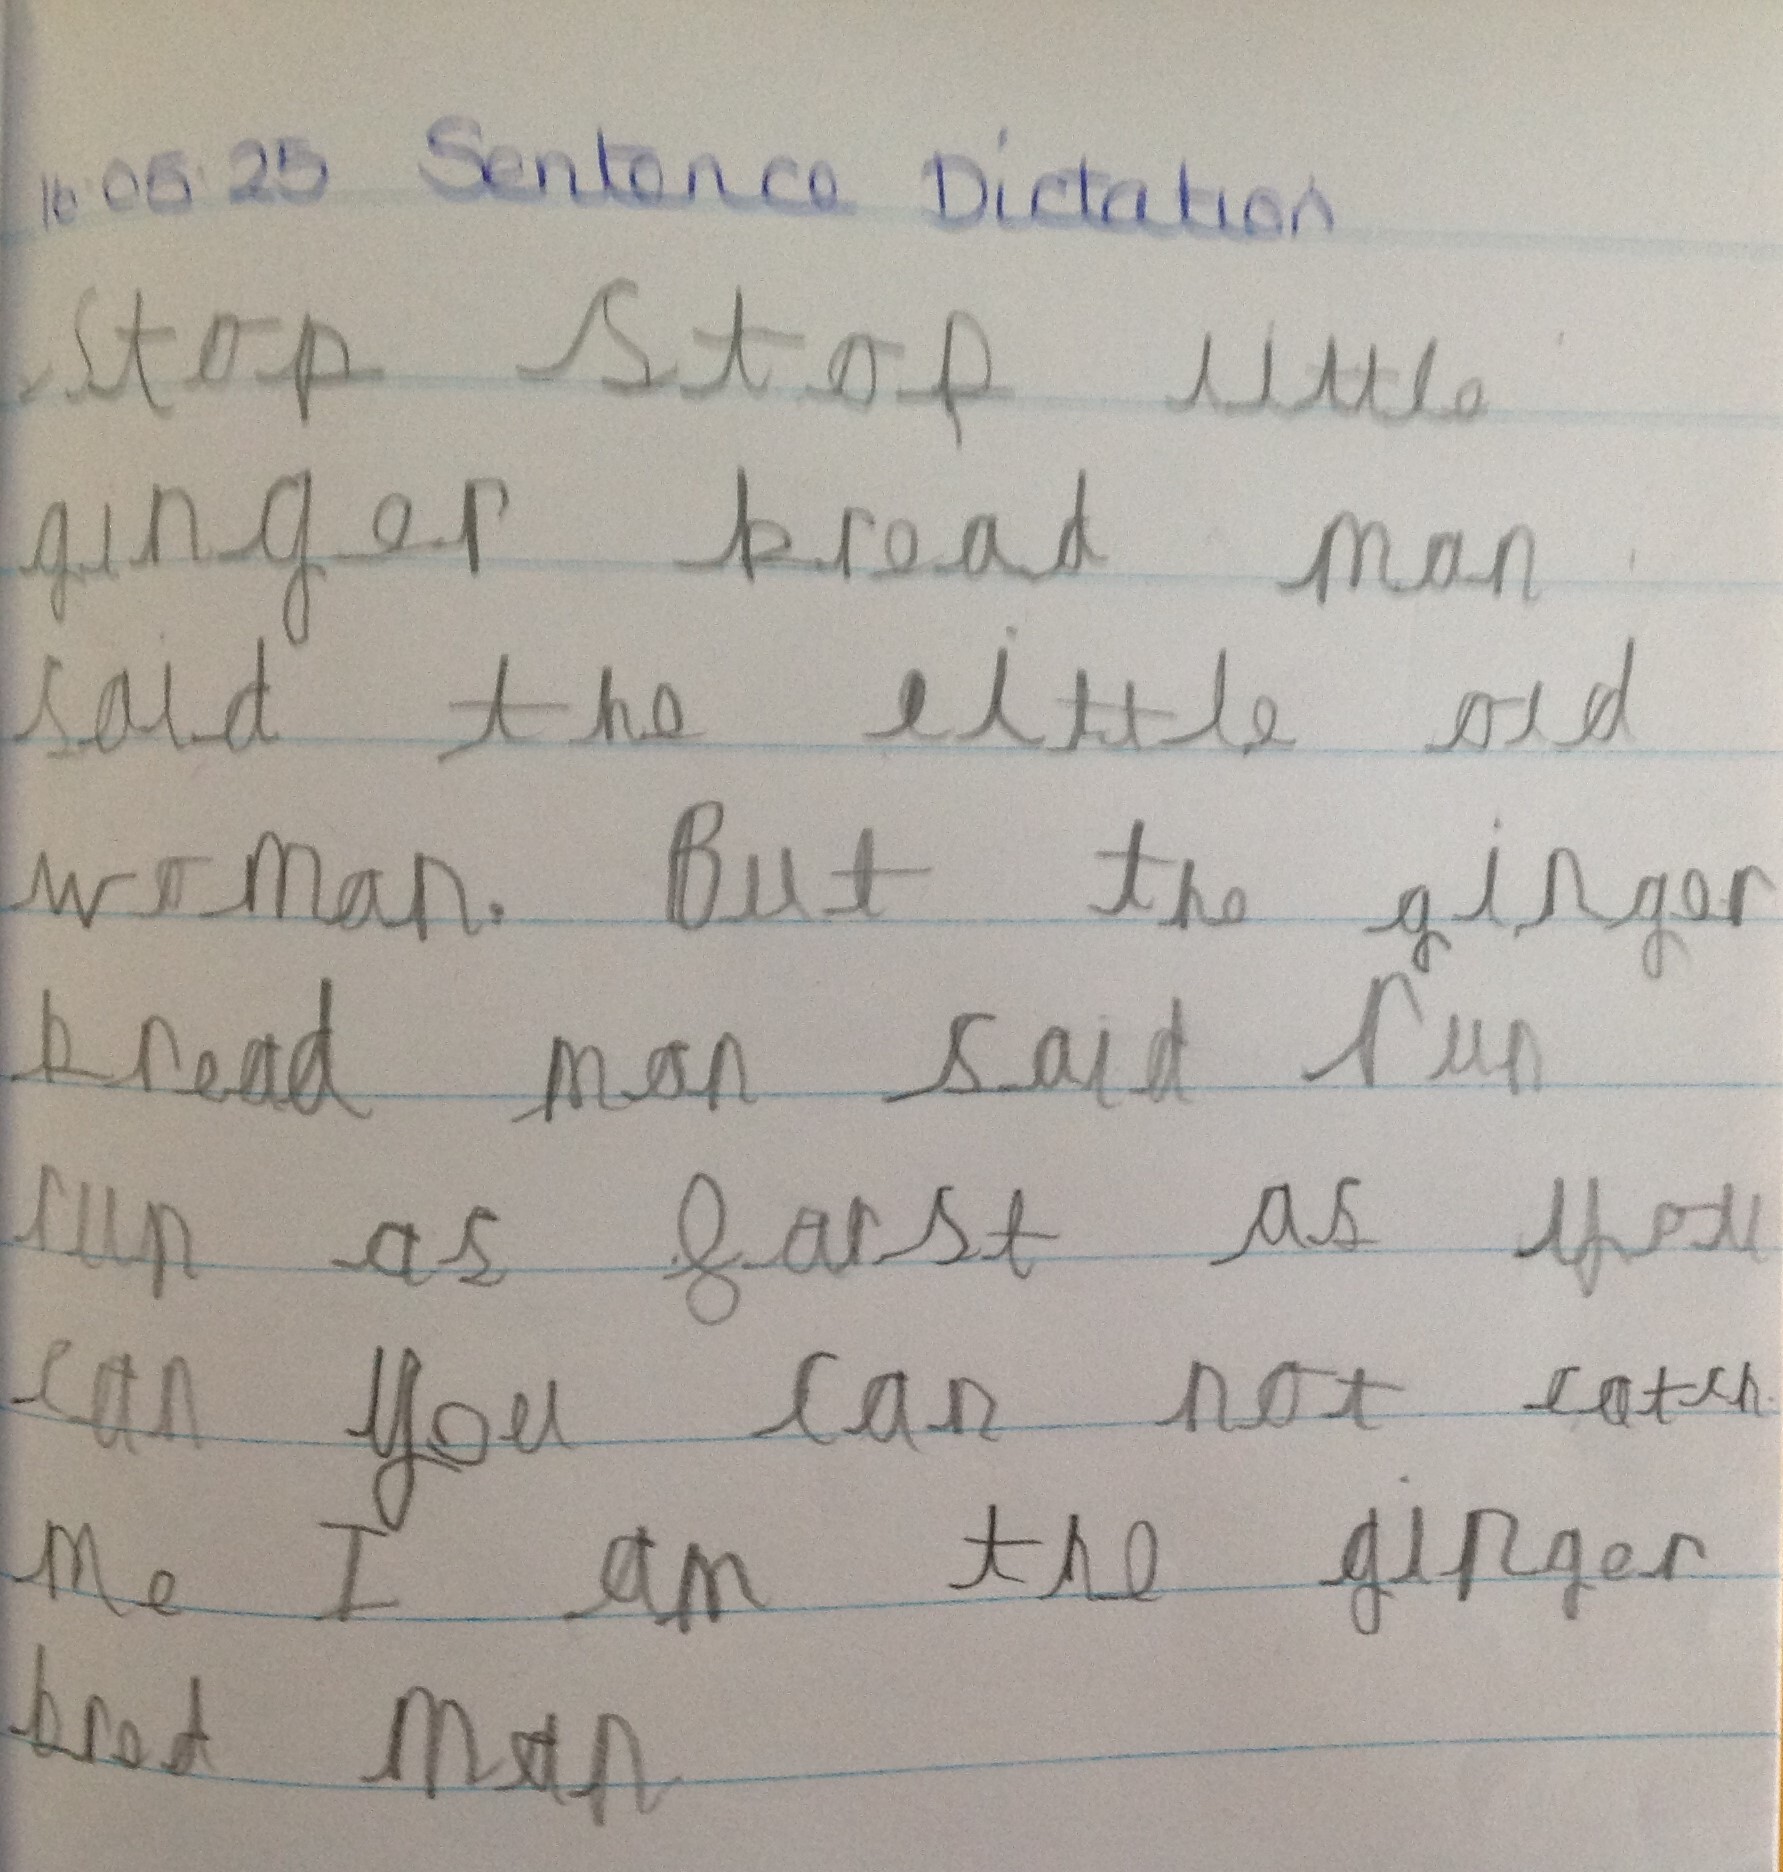 16.05.25 Sentence Dictation
stop stop little
ginger bread man
said the little old
woman. But the ginger
bread man said run
run as farst as you
can you can not catch
me I am the ginger
bred man